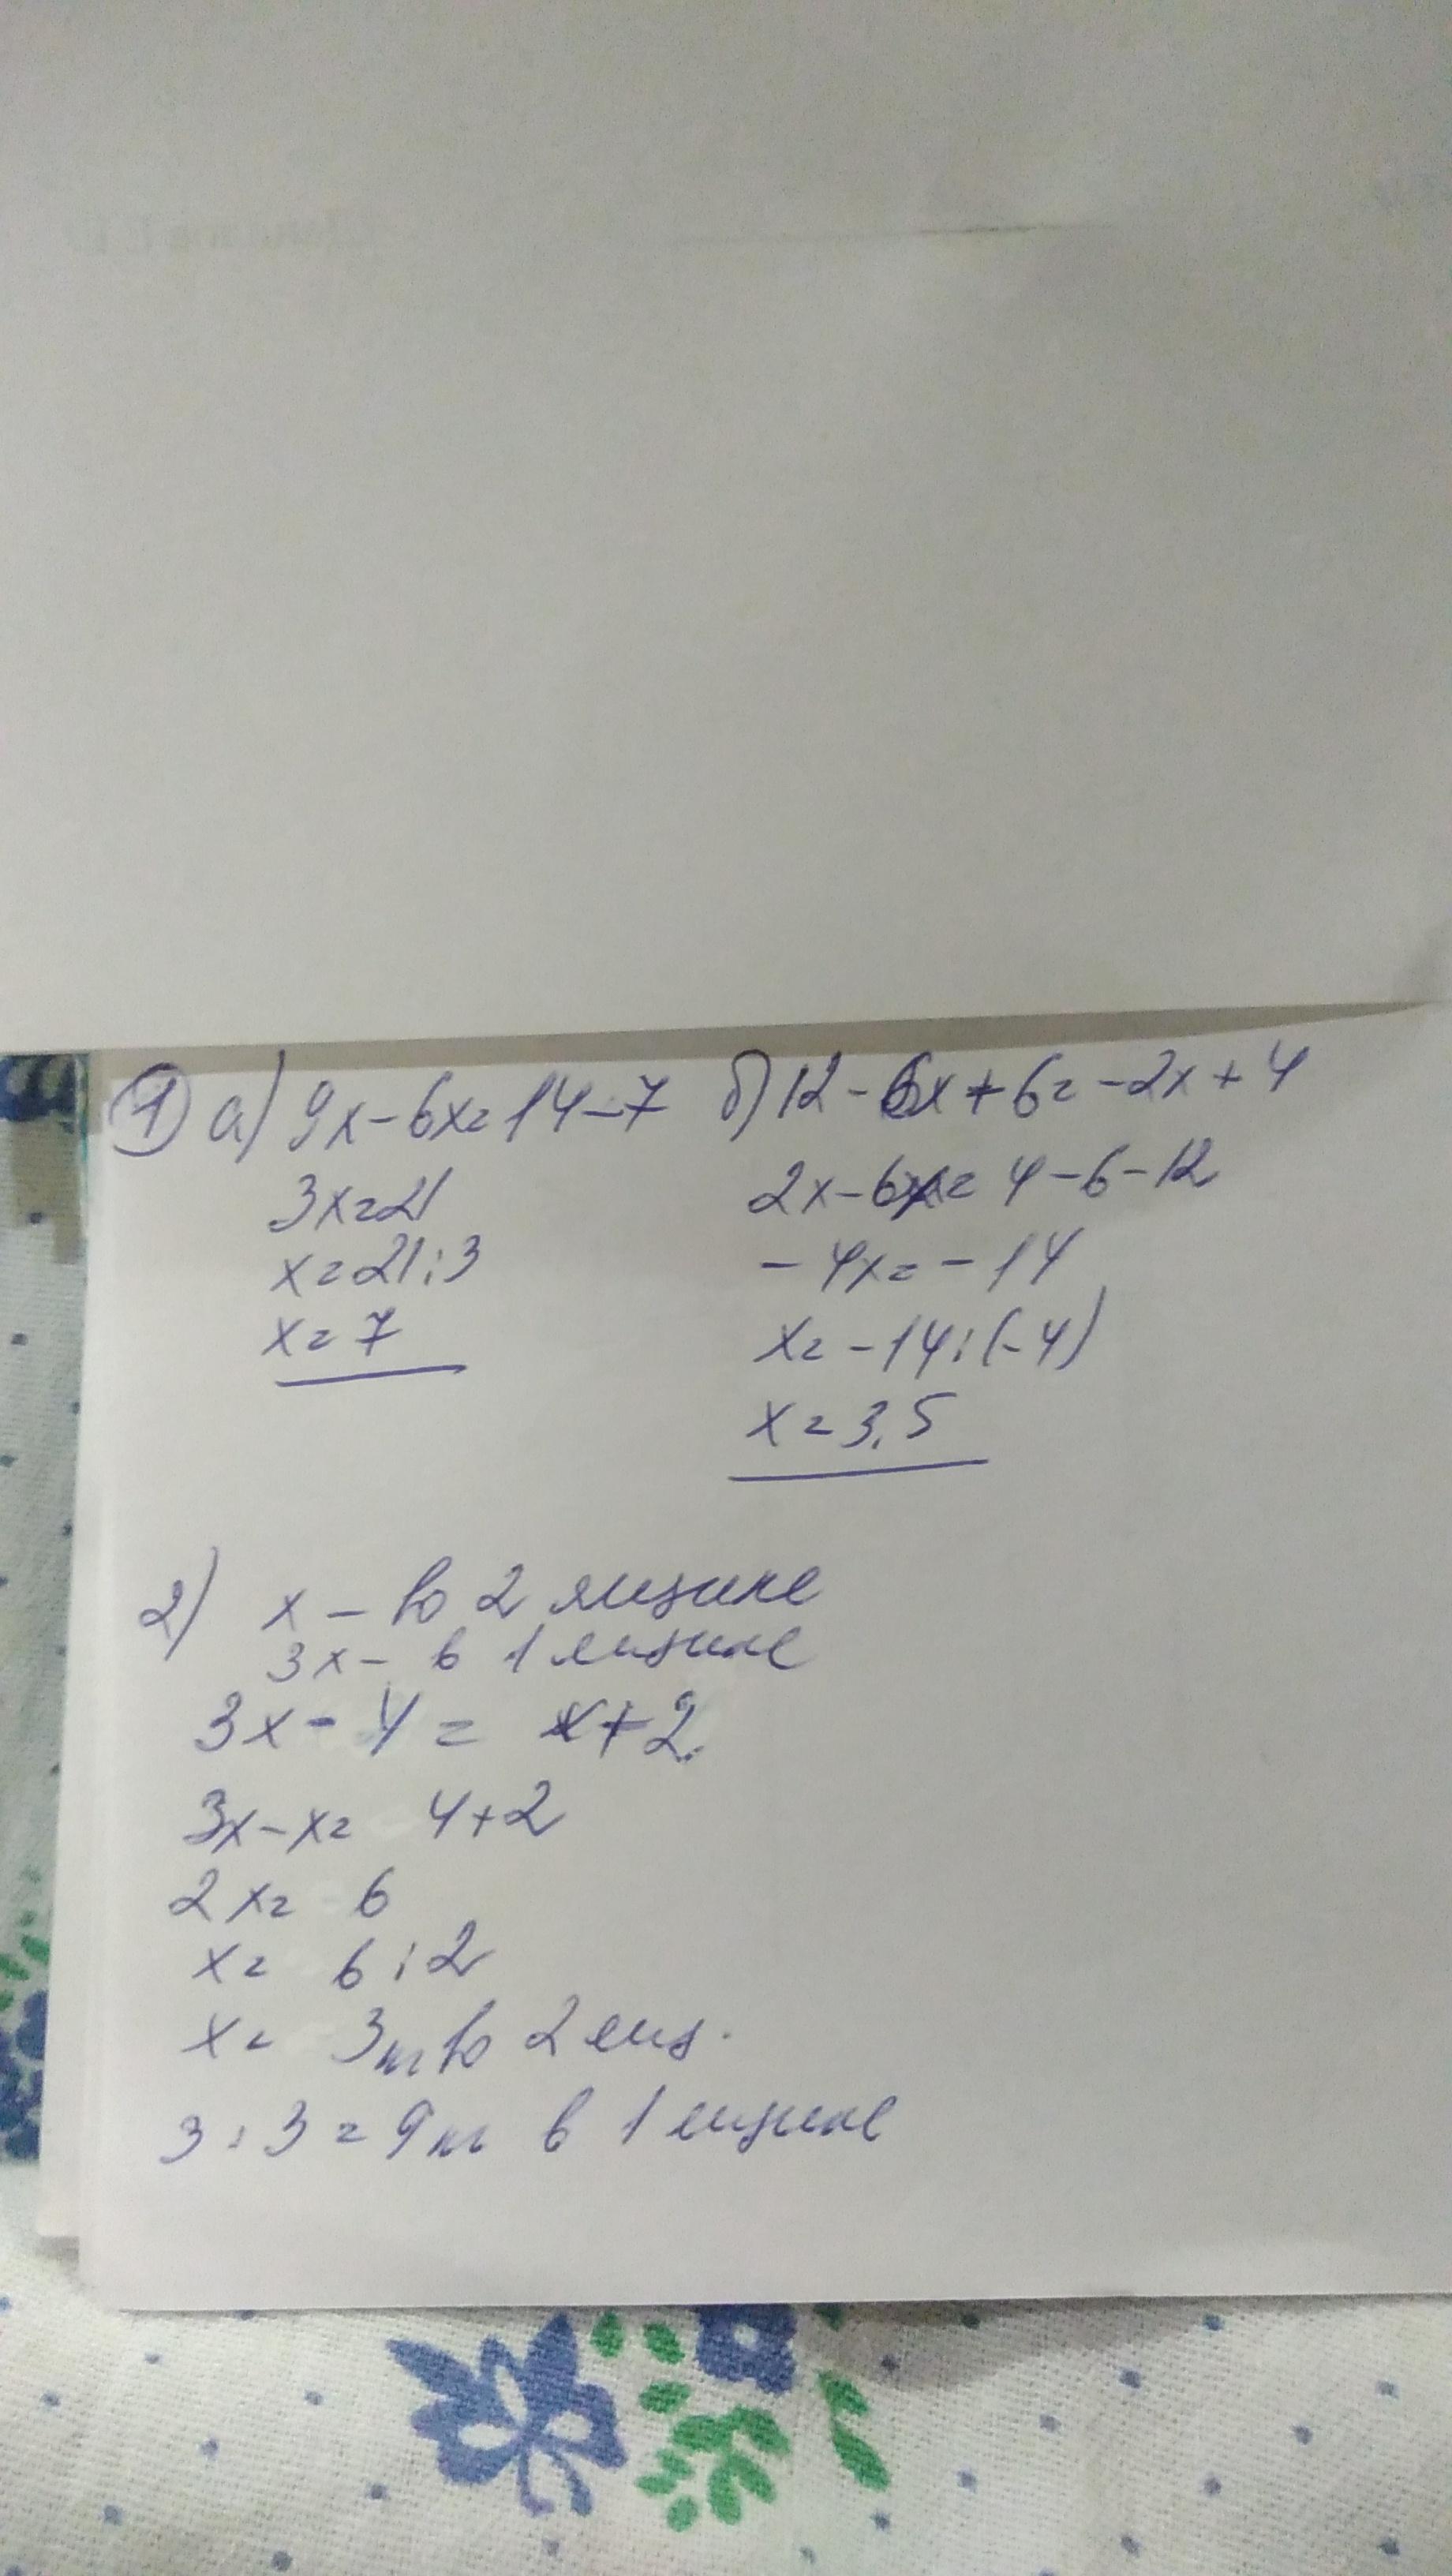 1 а) 9x-6x=14-7
3x=21
x=21:3
x=7
б) 12-6x+6=-2x+4
2x-6x=4-6-12
-4x=-14
x=-14:(-4)
x=3,5
2) x - во 2 ящике
3x - в 1 ящике
3x-4= x+2
3x-x= 4+2
2x= 6
x= 6:2
x= 3 кг во 2 ящ.
3·3=9 кг в 1 ящике